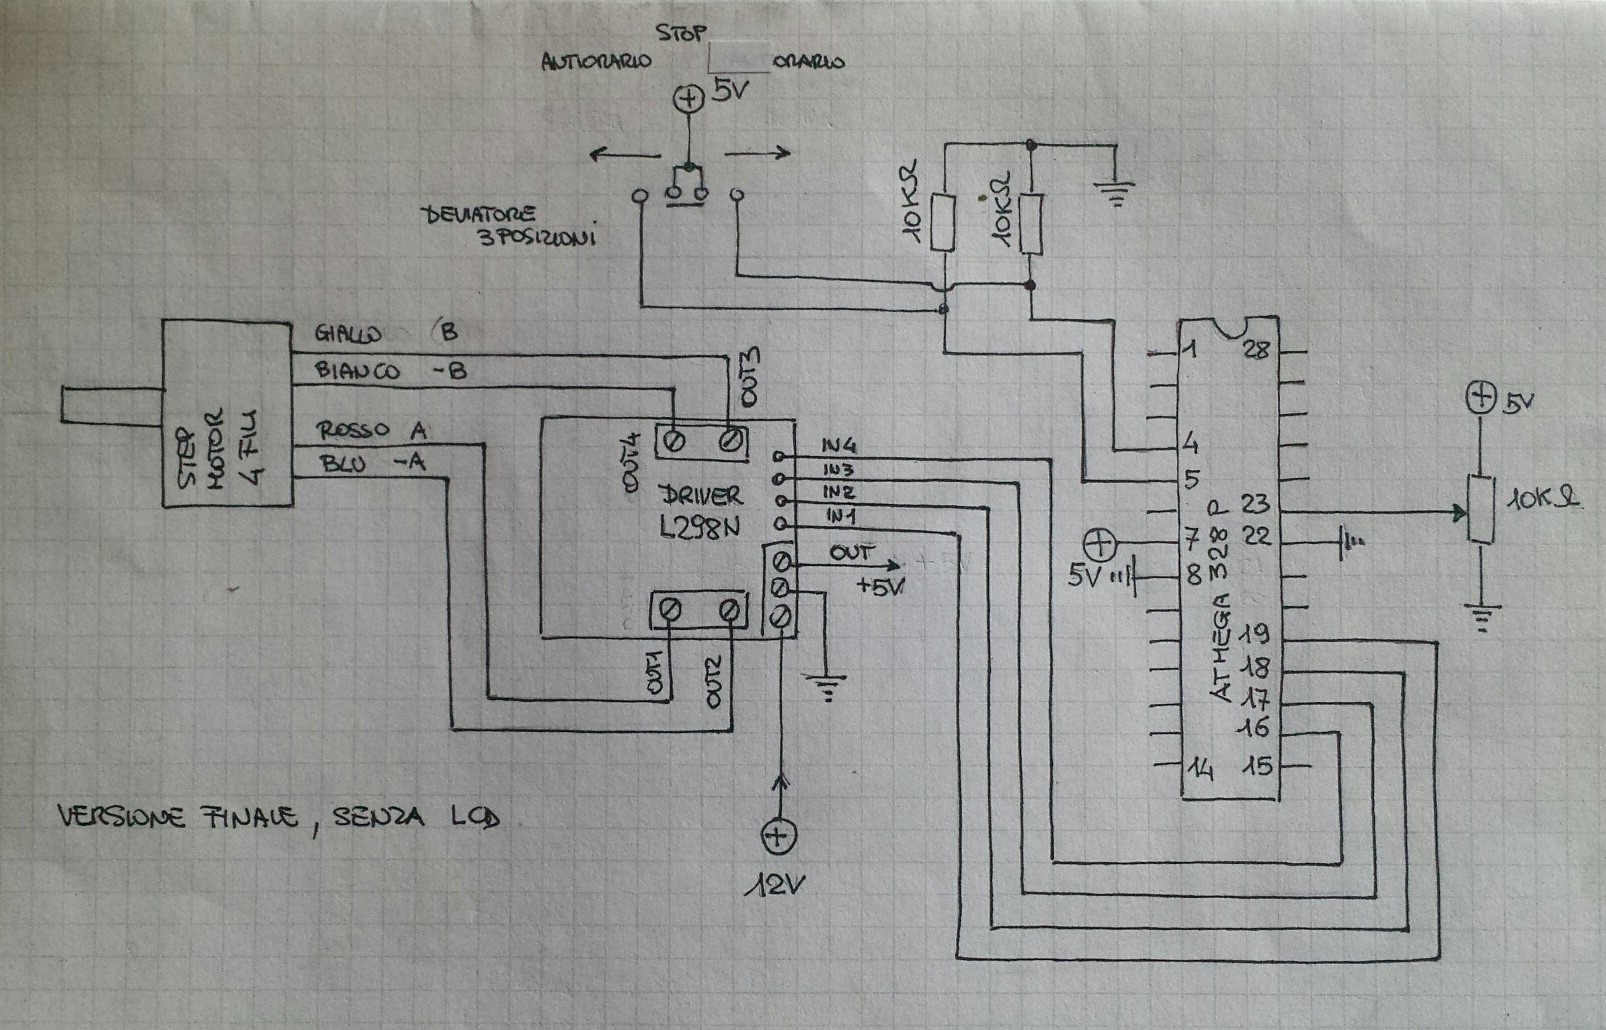 STOP
ANTIORARIO ORARIO
5V
DEVIATORE
3 POSIZIONI
10KΩ
10KΩ
GIALLO B
BIANCO -B
ROSSO A
BLU -A
STEP
MOTOR
4 FILI
OUT3
OUT4
DRIVER
L298N
IN4
IN3
IN2
IN1
OUT
+5V
OUT1
OUT2
12V
1 28
4
5
23
7 22
8
19
18
17
16
14 15
ATMEGA 328 P
5V
5V
10KΩ
VERSIONE FINALE, SENZA LCD